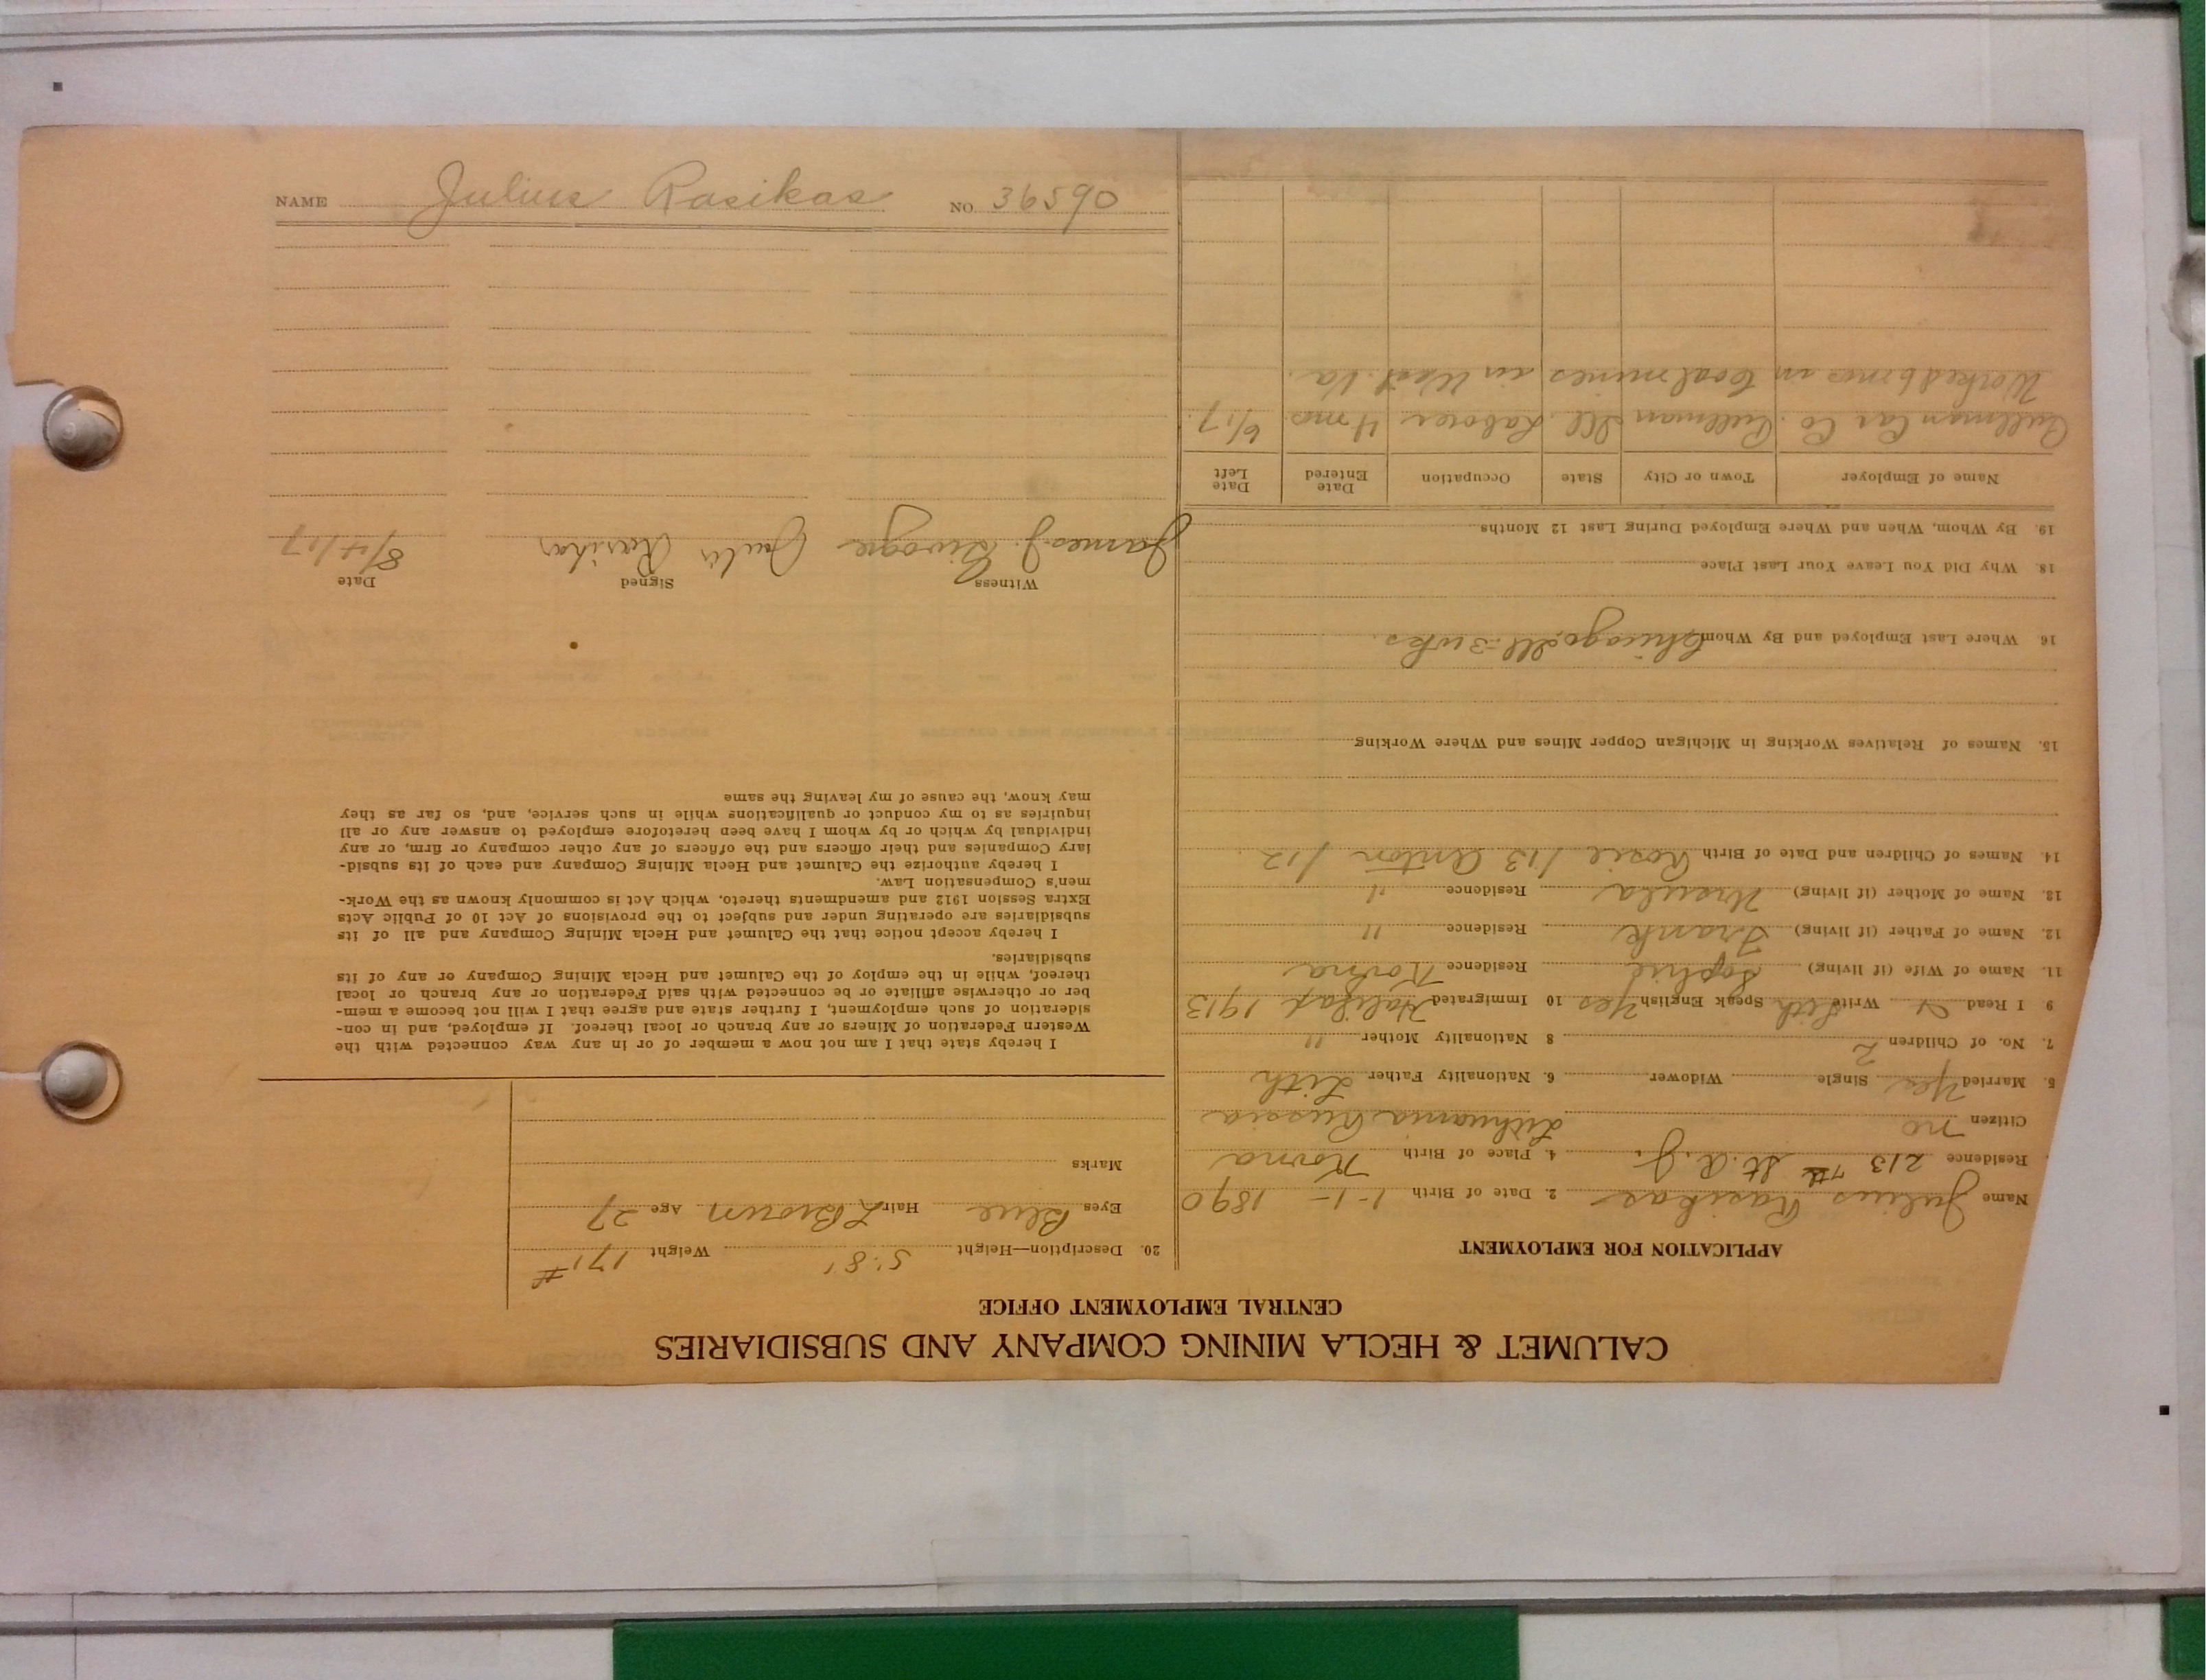 CALUMET & HECLA MINING COMPANY AND SUBSIDIARIES
CENTRAL EMPLOYMENT OFFICE
APPLICATION FOR EMPLOYMENT
Name Julius Rasikas 2. Date of Birth 1-1-1890
Residence 213 7th St. R.J. 4. Place of Birth Kovna
Citizen no Lithuania Russia
5. Married Yes Single Widower 6. Nationality Father Lith
7. No. of Children 2 8 Nationality Mother "
9 I Read & Write Lith Speak English Yes 10 Immigrated Halifax 1913
11. Name of Wife (if living) Sophie Residence Kovna
12. Name of Father (if living) Frank Residence "
13. Name of Mother (if living) Ursula Residence "
14. Names of Children and Date of Birth Rosie /13 Anton /12
15. Names of Relatives Working in Michigan Copper Mines and Where Working
16 Where Last Employed and By Whom Chicago Ill - 3 wks.
18. Why Did You Leave Your Last Place
19. By Whom, When and Where Employed During Last 12 Months
Name of Employer Town or City State Occupation Date Entered Date Left
Pullman Car Co. Pullman Ill Laborer 4 mos 6/17.
Worked 6 mos in Coal mines in West. Va.
20. Description—Height 5'.8' Weight 171#
Eyes Blue Hair L Brown Age 27
Marks
I hereby state that I am not now a member of or in any way connected with the
Western Federation of Miners or any branch or local thereof. If employed, and in con-
sideration of such employment, I further state and agree that I will not become a mem-
ber or otherwise affiliate or be connected with said Federation or any branch or local
thereof, while in the employ of the Calumet and Hecla Mining Company or any of its
subsidiaries.
I hereby accept notice that the Calumet and Hecla Mining Company and all of its
subsidiaries are operating under and subject to the provisions of Act 10 of Public Acts
Extra Session 1912 and amendments thereto, which Act is commonly known as the Work-
men's Compensation Law.
I hereby authorize the Calumet and Hecla Mining Company and each of its subsid-
iary Companies and their officers and the officers of any other company or firm, or any
individual by which or by whom I have been heretofore employed to answer any or all
inquiries as to my conduct or qualifications while in such service, and, so far as they
may know, the cause of my leaving the same
Witness Signed Date
James J.
NAME Julius Rasikas NO. 36590